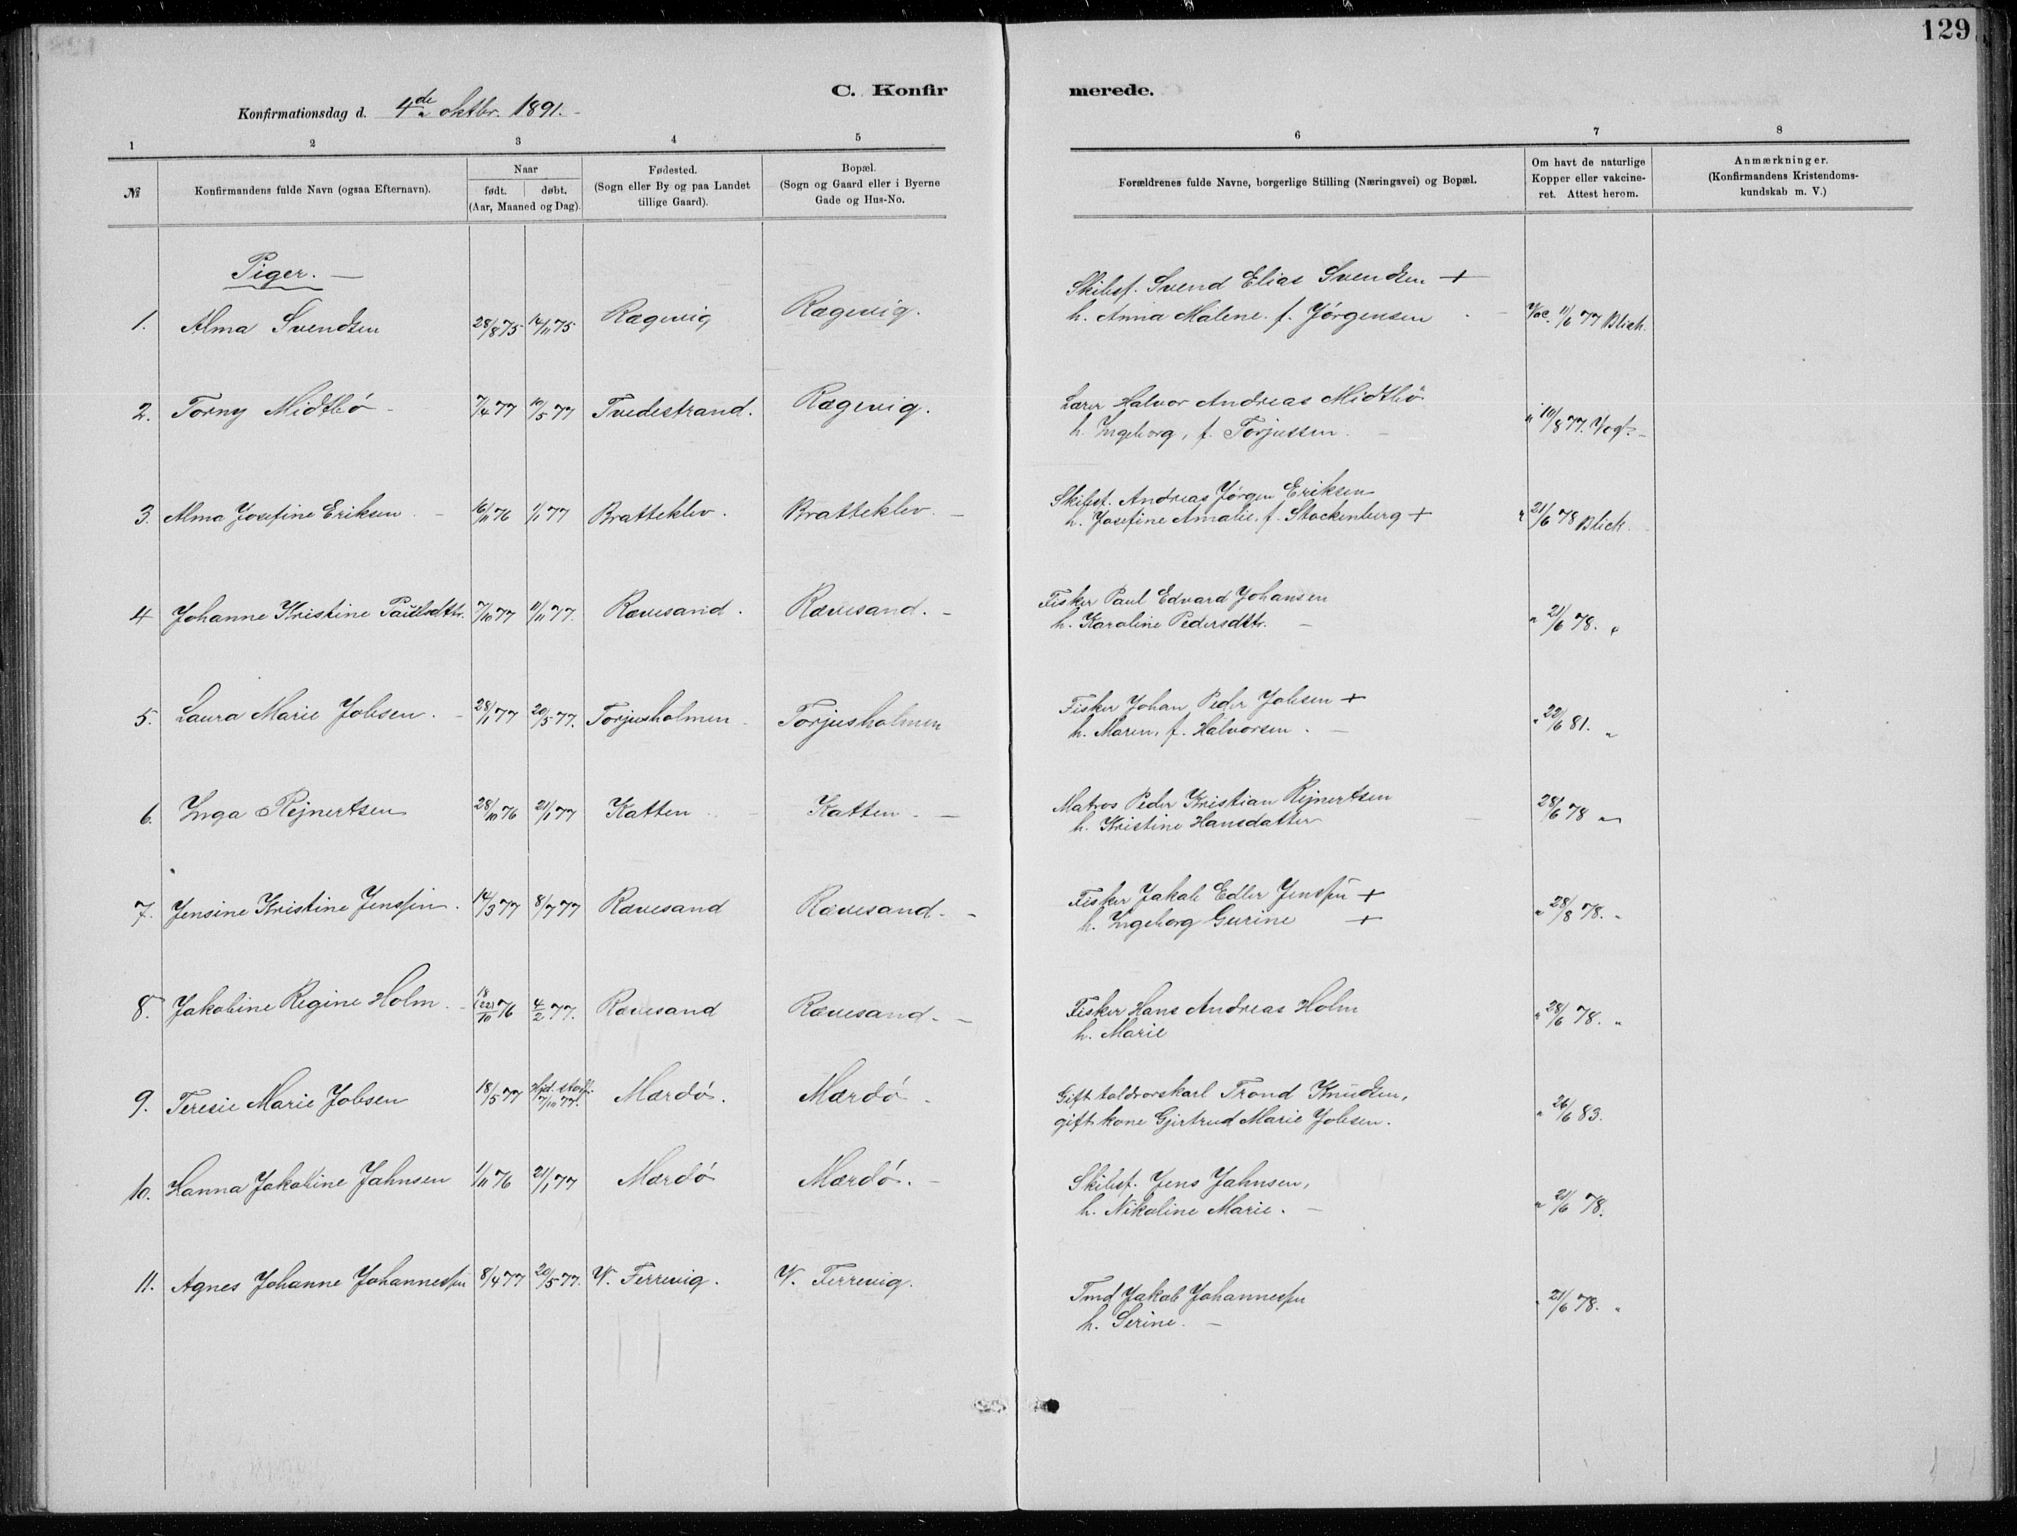 129
C. Konfirmerede.
Konfirmationsdag d. 4de oktbr. 1891.
1 2 3 4 5 6 7 8
№
Konfirmandens fulde Navn (ogsaa Efternavn).
Naar
født. døbt.
(Aar, Maaned og Dag).
Fødested.
(Sogn eller By og paa Landet
tillige Gaard).
Bopæl.
(Sogn og Gaard eller i Byerne
Gade og Hus-No.
Forældrenes fulde Navne, borgerlige Stilling (Næringsvei) og Bopæl.
Om havt de naturlige
Kopper eller vakcine-
ret. Attest herom.
Anmærkninger.
(Konfirmandens Kristendoms-
kundskab m. V.)
Piger.
1. Alma Svendsen 28/8 75 14/11 75 Rægevig Rægevig.
Skibsf. Svend Elias Svendsen +
h. Anna Malene f. Jørgensen
Vac. 11/6 77 Blich.
2. Torny Midtbö 7/4 77 10/5 77 Tvedestrand. Rægevig.
Lærer Halvor Andreas Midtbö
h. Ingeborg, f. Torjussen.
" 10/8 77.
3. Alma Josefine Eriksen 16/11 76 1/1 77 Bratteklev. Bratteklev.
Skibsf. Andreas Jørgen Eriksen
h. Josefine Amalie f. Stockenberg +
" 21/6 78 Blich.
4 Johanne Kristine Paulsdttr. 7/10 77 11/11 77. Rævesand. Rævesand.
Fisker Paul Edvard Johansen
h. Karoline Pedersdttr.
" 21/6 78. "
5. Laura Marie Jobsen. 28/1 77 20/5 77. Torjusholmen Torjusholmen
Fisker Johan Peder Jobsen +
h. Maren, f. Halvorsen.
" 22/6 81. "
6. Inga Rejnertsen 28/10 76 21/1 77 Katten Katten.
Matros Peder Kristian Rejnertsen
h. Kristine Hansdatter
28/6 78 "
7. Jensine Kristine Jenssen. 14/3 77 8/7 77 Rævesand Rævesand.
Fisker Jakob Edler Jenssen +
h. Ingeborg Gurine +
" 28/8 78. "
8. Jakobine Regine Holm 18 (22)/10 76 4/2 77. Rævesand Rævesand.
Fisker Hans Andreas Holm
h. Marie
" 28/6 78. "
9. Teresie Marie Jobsen 18/5 77 7/10 77. Mærdö. Mærdö.
Gift toldrorskarl Trond Knudsen,
gift kone Gjertrud Marie Jobsen.
" 26/6 83.
10. Hanna Jakobine Jahnsen 1/11 76 21/1 77 Mærdö Mærdö.
Skibsf. Jens Jahnsen,
h. Nikoline Marie.
" 21/6 78.
11. Agnes Johanne Johannessen 8/4 77 20/5 77. V. Terrevig. V. Terrevig.
Tmd Jakob Johannessen
h. Serine.
" 21/6 78. "